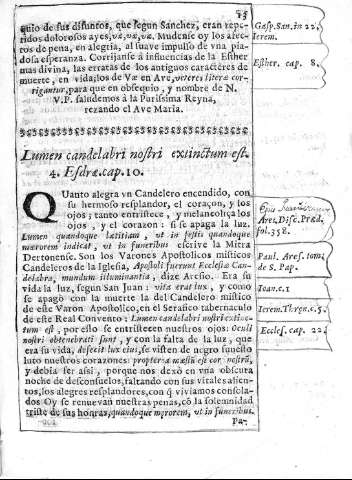 15
quio de sus difuntos, que segun Sanchez, eran repe-
ridos dolorosos ayes, væ, væ, væ. Mudense oy los afec-
tos de pena, en alegria, al suave impulso de vna pia-
dosa esperanza. Corrijanse à influencias de la Esther
mas divina, las erratas de los antiguos caractères de
muerte, en vida, los de Væ en Ave, veteres literæ cor-
rigantur, para que en obsequio, y nombre de N.
V.P. saludemos à la Purissima Reyna,
rezando el Ave Maria.
Gasp. San. in 22.
Ierem.
Esther. cap. 8.
Lumen candelabri nostri extinctum est.
4. Esdræ. cap. 10.
QUanto alegra vn Candelero encendido, con
su hermoso resplandor, el coraçon, y los
ojos; tanto entristece, y melancoliça los
ojos, y el corazon: si se apaga la luz.
Lumen quandoque lætitiam, ut in festis quandoque
mœrorem indicat, ut in funeribus escrive la Mitra
Dertonense. Son los Varones Apostolicos misticos
Candeleros de la Iglesia, Apostoli fuerunt Ecclesiæ Can-
delabra, mundum illuminantia, dize Aresio. Era su
vida la luz, segun San Juan: vita erat lux, y como
se apagò con la muerte la del Candelero mistico
de este Varon Apostolico, en el Serafico tabernaculo
de este Real Convento: Lumen candelabri nostri extinc-
tum est, por esso se entristecen nuestros ojos: Oculi
nostri obtenebrati sunt, y con la falta de la luz, que
era su vida, defecit lux eius, se visten de negro funesto
luto nuestros corazones: propterea mœstü est cor nostrü,
y debia ser assi, porque nos dexò en vna obscura
noche de desconsuelos, faltando con sus vitales alien-
tos, los alegres resplandores, con q̃ viviamos consola-
dos. Oy se renuevan nuestras penas, cò la solemnidad
triste de sus honras, quandoque mœrorem, ut in funeribus.
Pa-
Ares. Disc. Præd.
fol. 358.
Paul. Ares. tom.
de S. Pap.
Ioan. c. 1
Ierem. Thren. c. 5.
Eccles. cap. 22.